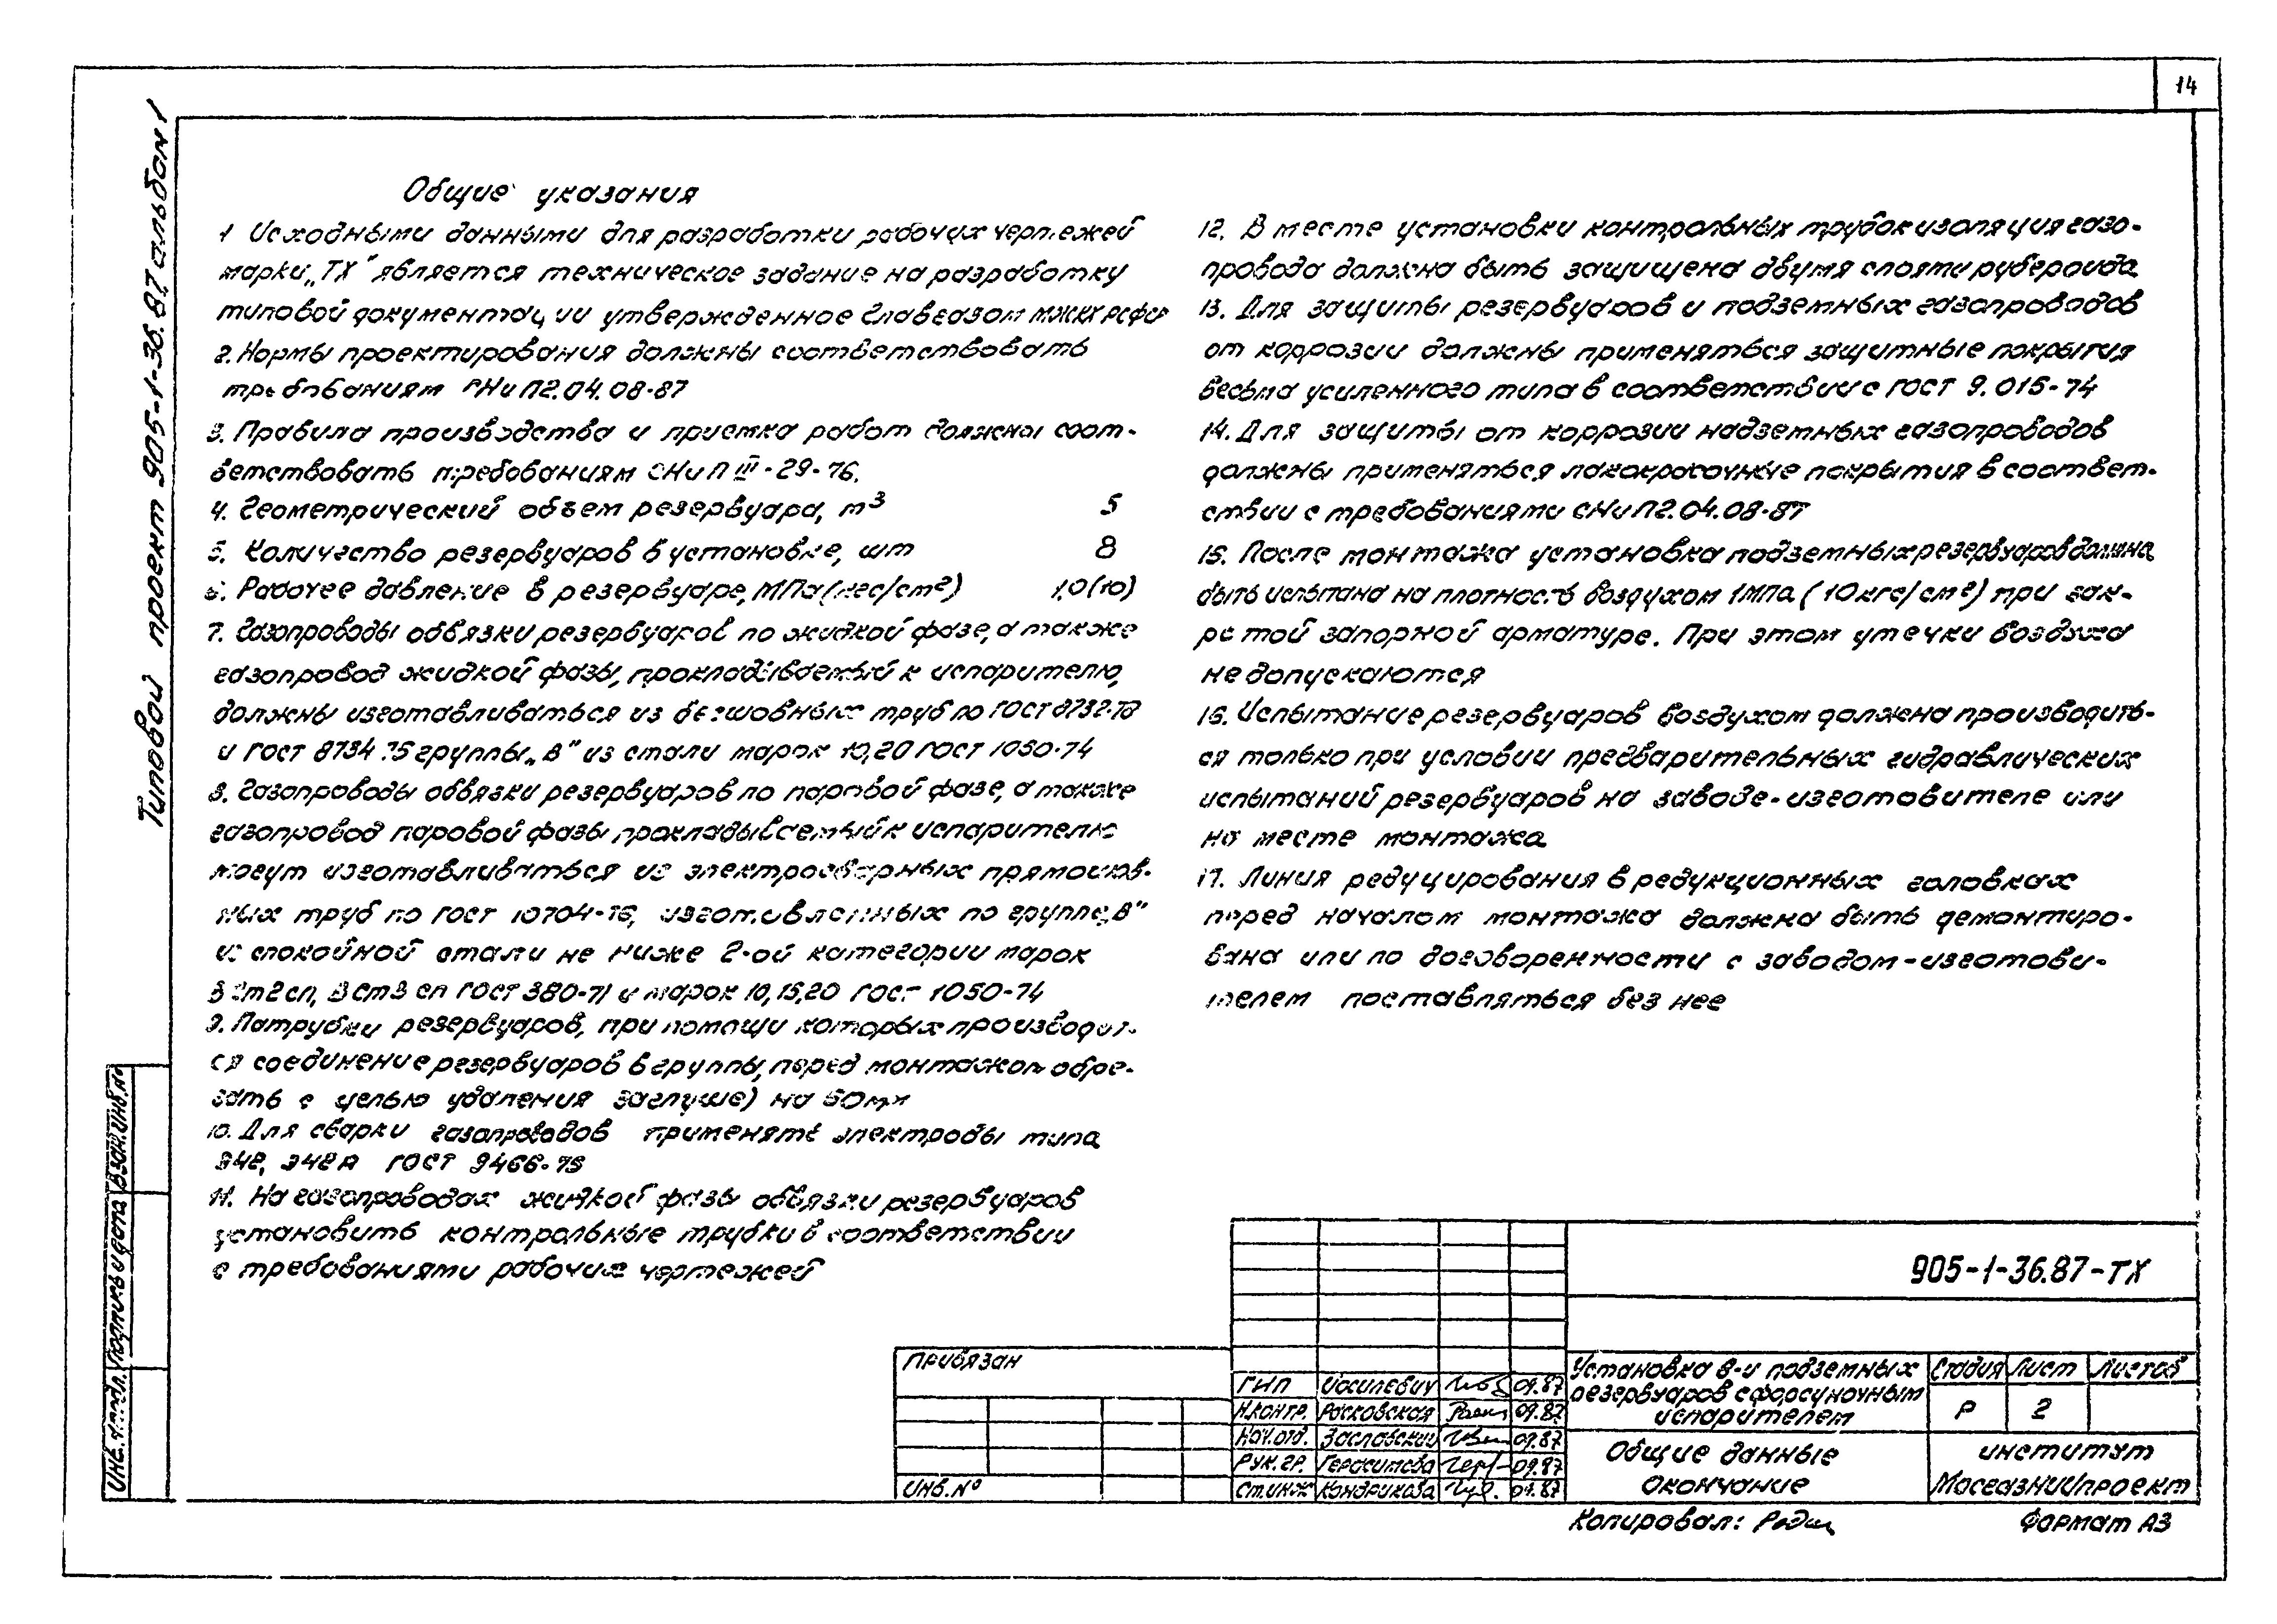 14
Типовой проект 905-1-36.87 альбом 1
Общие указания
1 Исходными данными для разработки рабочих чертежей
марки „ТХ" является техническое задание на разработку
типовой документации утвержденное Главгазом МЖКХ РСФСР
2. Нормы проектирования должны соответствовать
требованиям СНиП2.04.08-87
3. Правила производства и приемка работ должны соот-
ветствовать требованиям СНиП III-29-76.
4. Геометрический объем резервуара, м³ 5
5. Количество резервуаров в установке, шт 8
6. Рабочее давление в резервуаре, МПа (кгс/см²) 1,0(10)
7. Газопроводы обвязки резервуаров по жидкой фазе, а также
газопровод жидкой фазы, прокладываемый к испарителю,
должны изготавливаться из бесшовных труб по ГОСТ 8732-78
и ГОСТ 8734-75 группы „В" из стали марок 10,20 ГОСТ 1050-74
8. Газопроводы обвязки резервуаров по паровой фазе, а также
газопровод паровой фазы прокладываемый к испарителю
могут изготавливаться из электросварных прямошов-
ных труб по ГОСТ 10704-76, изготовленных по группе „В"
из спокойной стали не ниже 2-ой категории марок
В Ст2 сп, В Ст3 сп ГОСТ 380-71 и марок 10,15,20 ГОСТ 1050-74
9. Патрубки резервуаров, при помощи которых производит-
ся соединение резервуаров в группы, перед монтажом обре-
зать с целью удаления заглушек на 50мм
10. Для сварки газопроводов применять электроды типа
Э42, Э42А ГОСТ 9466-75
11. На газопроводах жидкой фазы обвязки резервуаров
установить контрольные трубки в соответствии
с требованиями рабочих чертежей
12. В месте установки контрольных трубок изоляция газо-
провода должна быть защищена двумя слоями рубероида
13. Для защиты резервуаров и подземных газопроводов
от коррозии должны применяться защитные покрытия
весьма усиленного типа в соответствии с ГОСТ 9.015-74
14. Для защиты от коррозии надземных газопроводов
должны применяться лакокрасочные покрытия в соответ-
ствии с требованиями СНиП2.04.08-87
15. После монтажа установка подземных резервуаров должна
быть испытана на плотность воздухом 1МПа (10кгс/см²) при зак-
рытой запорной арматуре. При этом утечки воздуха
не допускаются
16. Испытание резервуаров воздухом должна производить-
ся только при условии предварительных гидравлических
испытаний резервуаров на заводе-изготовителе или
на месте монтажа
17. Линия редуцирования в редукционных головках
перед началом монтажа должна быть демонтиро-
вана или по договоренности с заводом-изготови-
телем поставляться без нее
Взам.инв.№
Подпись и дата
Инв.№ подл.
Привязан
Инв.№
905-1-36.87-ТХ
ГИП Иосилевич 09.87
Н.контр. Расковская 09.87
Нач.отд. Заславский 09.87
Рук.гр. Герасимова 09.87
Ст.инж Кондрикова 09.87
Установка 8-и подземных
резервуаров с форсуночным
испарителем
Стадия Лист Листов
Р 2
Общие данные
Окончание
институт
МосгазНИИпроект
Копировал:
Формат А3